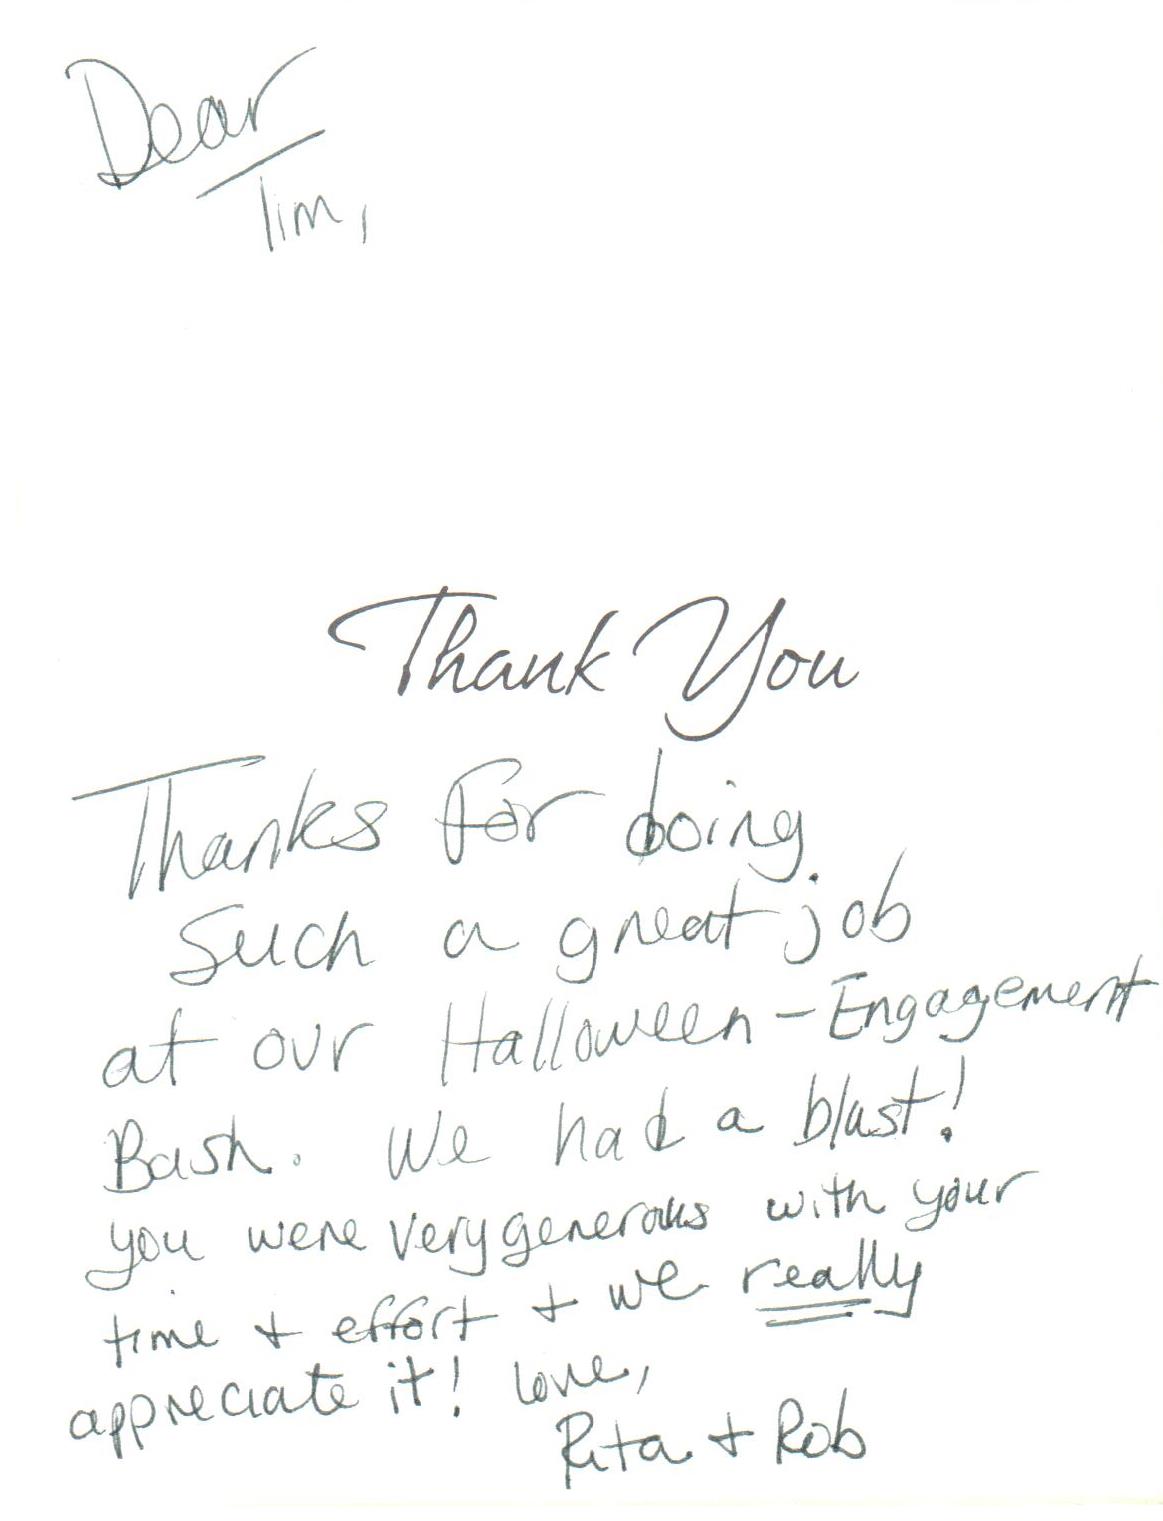 Dear
Tim,
Thank You
Thanks for doing
such a great job
at our Halloween-Engagement
Bash. We had a blast!
you were very generous with your
time + effort + we really
appreciate it! Love,
Rita + Rob